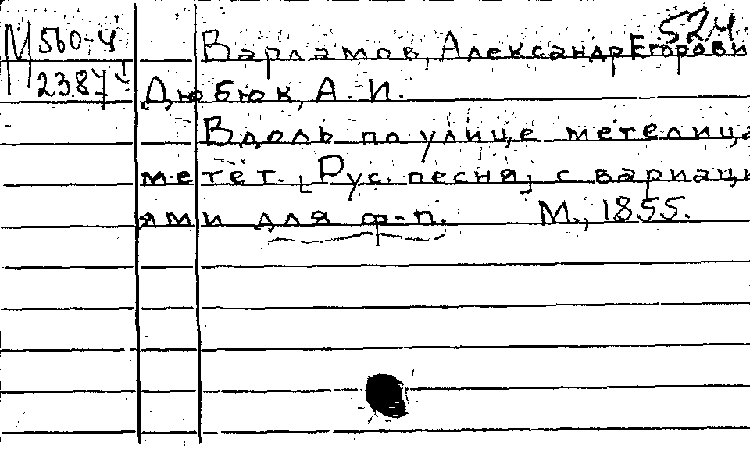 524
М 560-4 Варламов, Александр Егорови
2387 Дюбюк, А. И.
Вдоль по улице метелица
метёт. [Рус. песня] с вариаци
ями для ф-п. М., 1855.